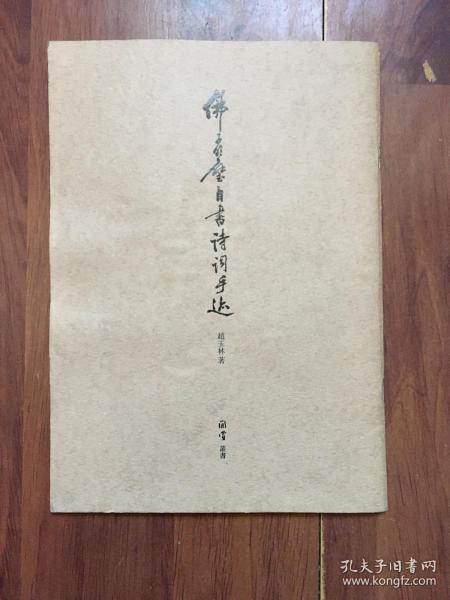 佛自書诗词手迹
趙玉林著
叢書
孔夫子旧书网
www.kongfz.com